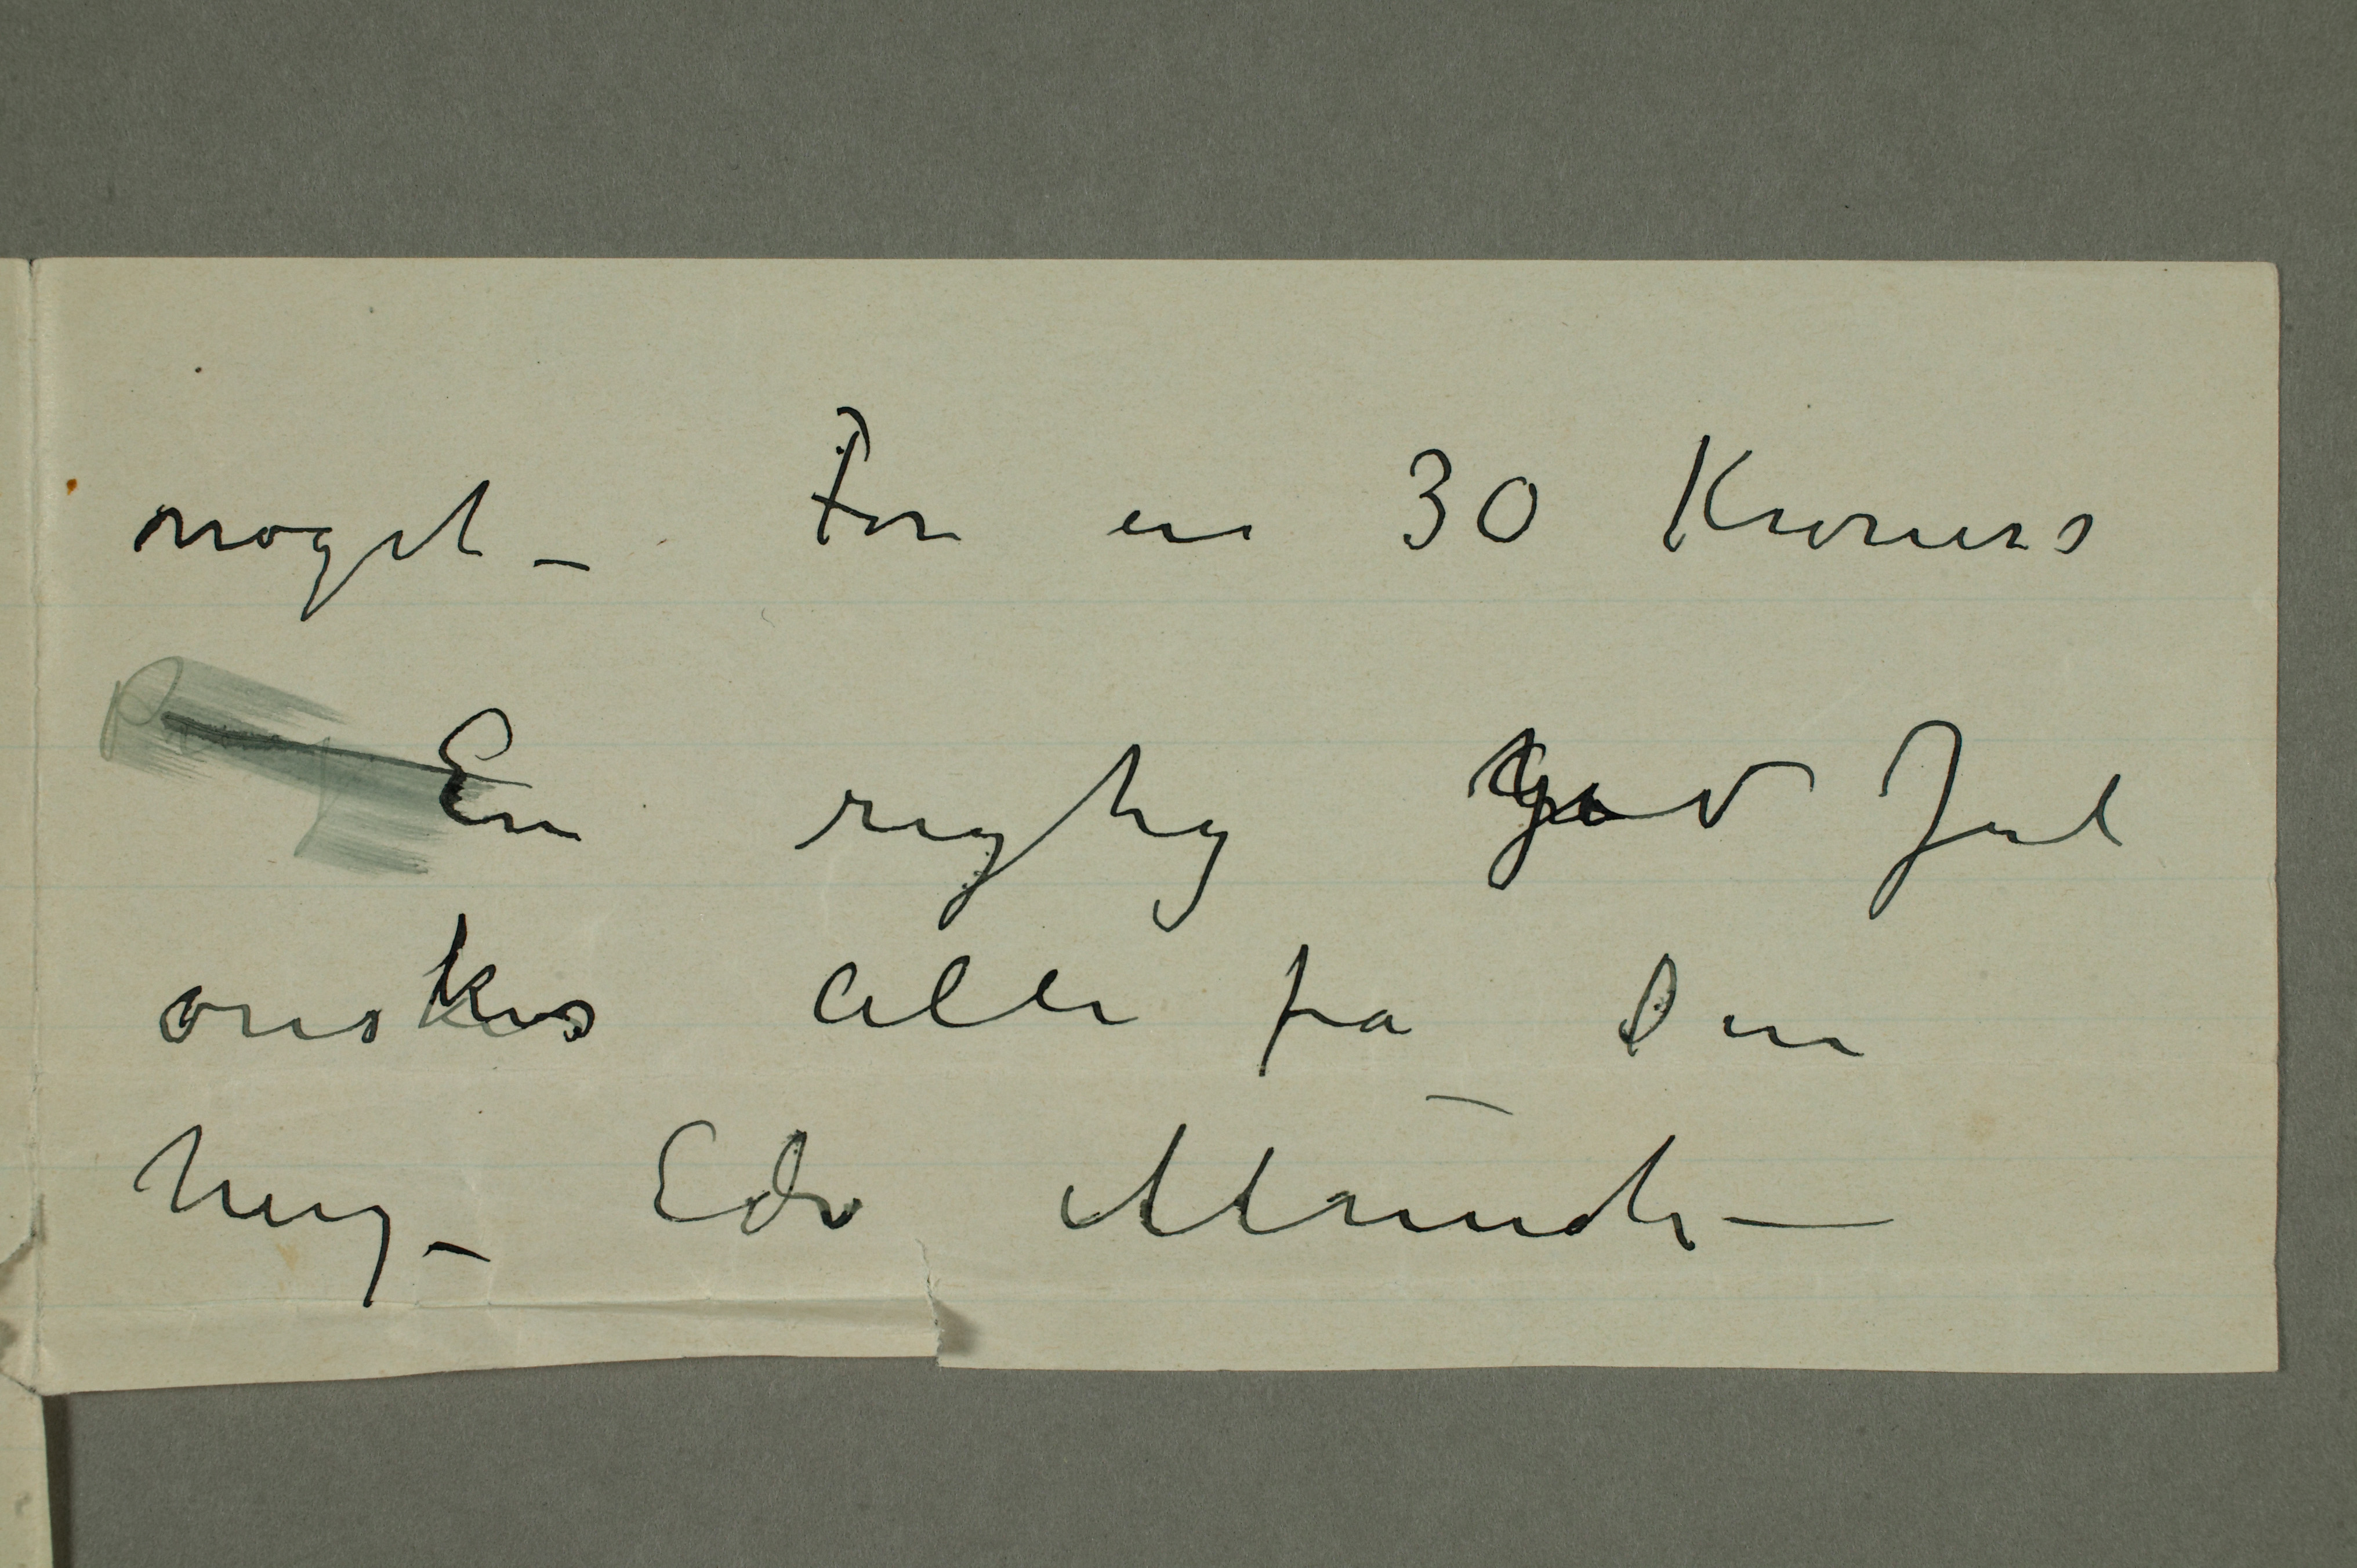 noget – For en 30 Kroners
En rigtig god Jul
ønskes alle fra Din
heng. Edv Munch –